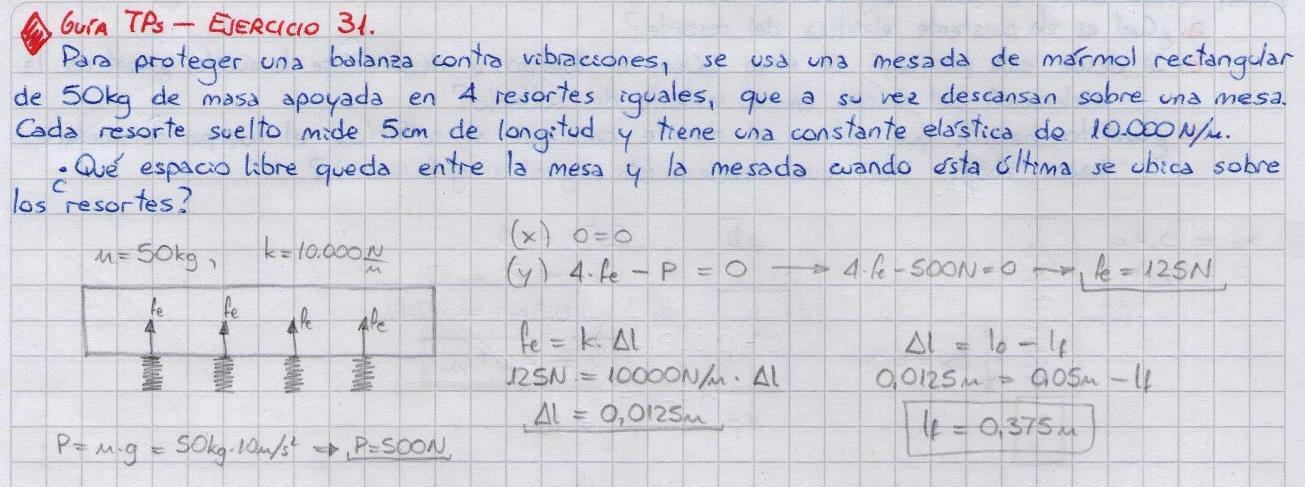 GUÍA TPs — EJERCICIO 31.
Para proteger una balanza contra vibraciones, se usa una mesada de mármol rectangular
de 50kg de masa apoyada en 4 resortes iguales, que a su vez descansan sobre una mesa.
Cada resorte suelto mide 5cm de longitud y tiene una constante elástica de 10.000N/m.
• ¿Qué espacio libre queda entre la mesa y la mesada cuando ésta última se ubica sobre
los resortes?
m=50kg, k=10.000 N/m
fe fe fe fe
P = m.g = 50kg.10m/s² ⇒ P=500N
(x) 0=0
(y) 4.fe - P = 0 → 4.fe-500N=0 → fe=125N
fe = k.Δl
125N = 10000N/m.Δl
Δl = 0,0125m
Δl = lo - lf
0,0125m = 0,05m - lf
lf = 0,375m